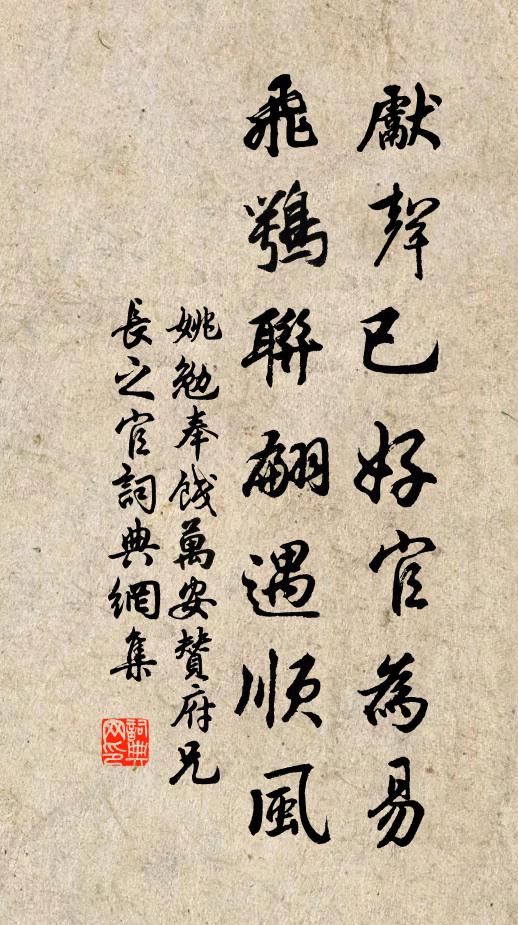 獻聲已好官為易
飛鶚聯翩遇順風
姚勉奉餞萬安贊府兄
長之官詞典網集
詞典
网印